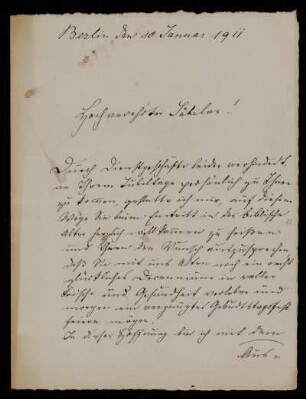 Berlin den 10 Januar 1911
Hochverehrter Jubilar!
Durch Dienstgeschäfte leider verhindert,
an Ihrem Jubeltage persönlich zu Ihnen
zu kommen, gestatte ich mir, auf diesem
Wege Sie beim Eintritt in das biblische
Alter herzlich willkommen zu heißen
und Ihnen den Wunsch auszusprechen
daß Sie mit uns Alten noch ein recht
glückliches Decennium in voller
Frische und Gesundheit verleben und
morgen ein vergnügtes Geburtstagsfest
feiern mögen.
In dieser Hoffnung bin ich mit dem
Aus-